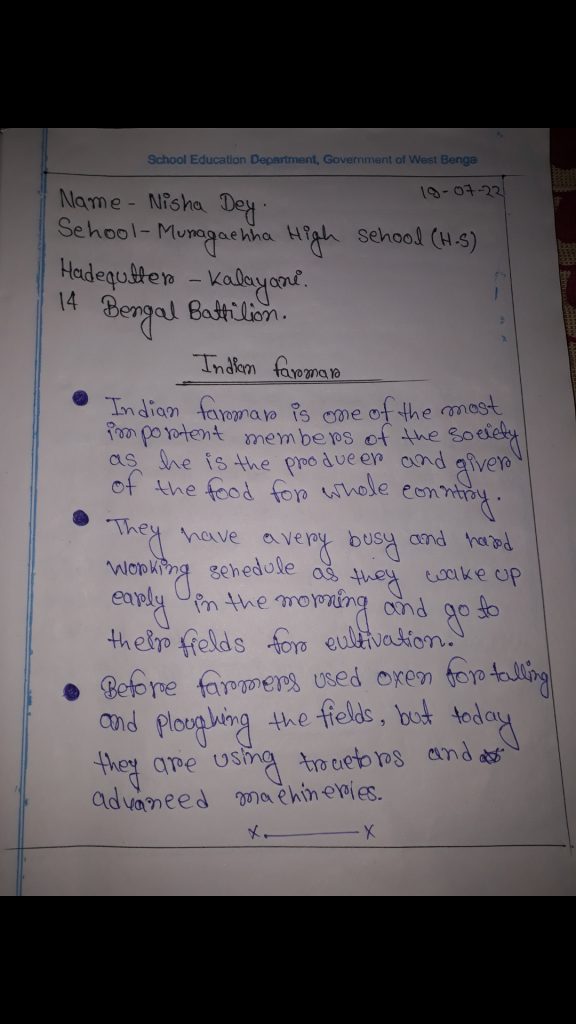 School Education Department, Government of West Benga
19-07-22
Name - Nisha Dey.
School - Muragachha High school (H.S)
Hadequtter - Kalayani.
14 Bengal Battilion.
Indian farmar
Indian farmar is one of the most
imporotent members of the society
as he is the producer and giver
of the food for whole country.
They have a very busy and hard
working schedule as they wake up
early in the morning and go to
their fields for cultivation.
Before farmers used oxen for talling
and ploughing the fields, but today
they are using tractors and
advanced machineries.
x ——— x